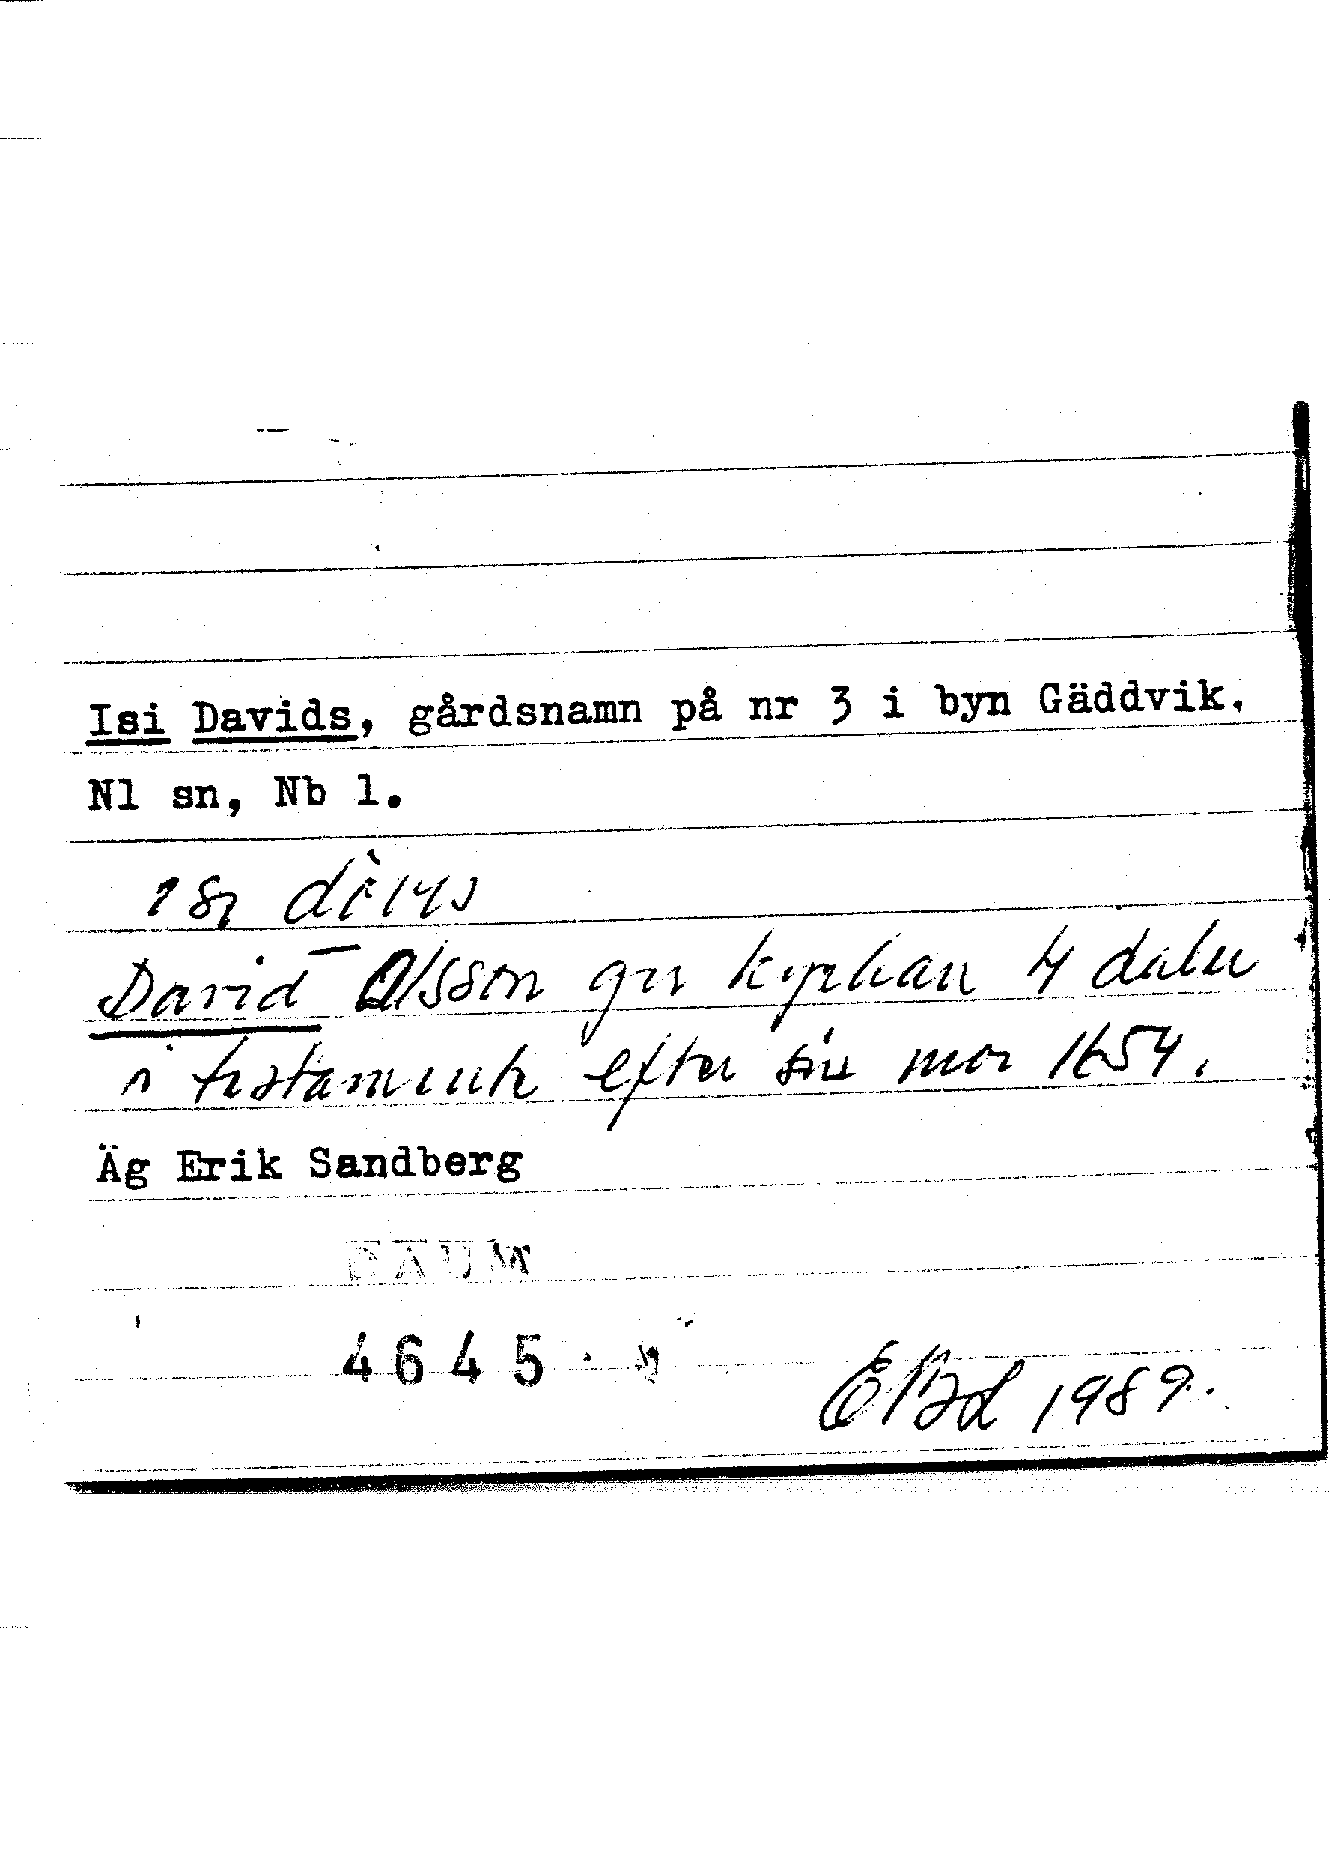 Isi Davids, gårdsnamn på nr 3 i byn Gäddvik,
Nl sn, Nb l.
David Olsson ger kyrkan 4 daler
i testamente efter sin mor 1654.
Äg Erik Sandberg
DAUM
4645
1989.